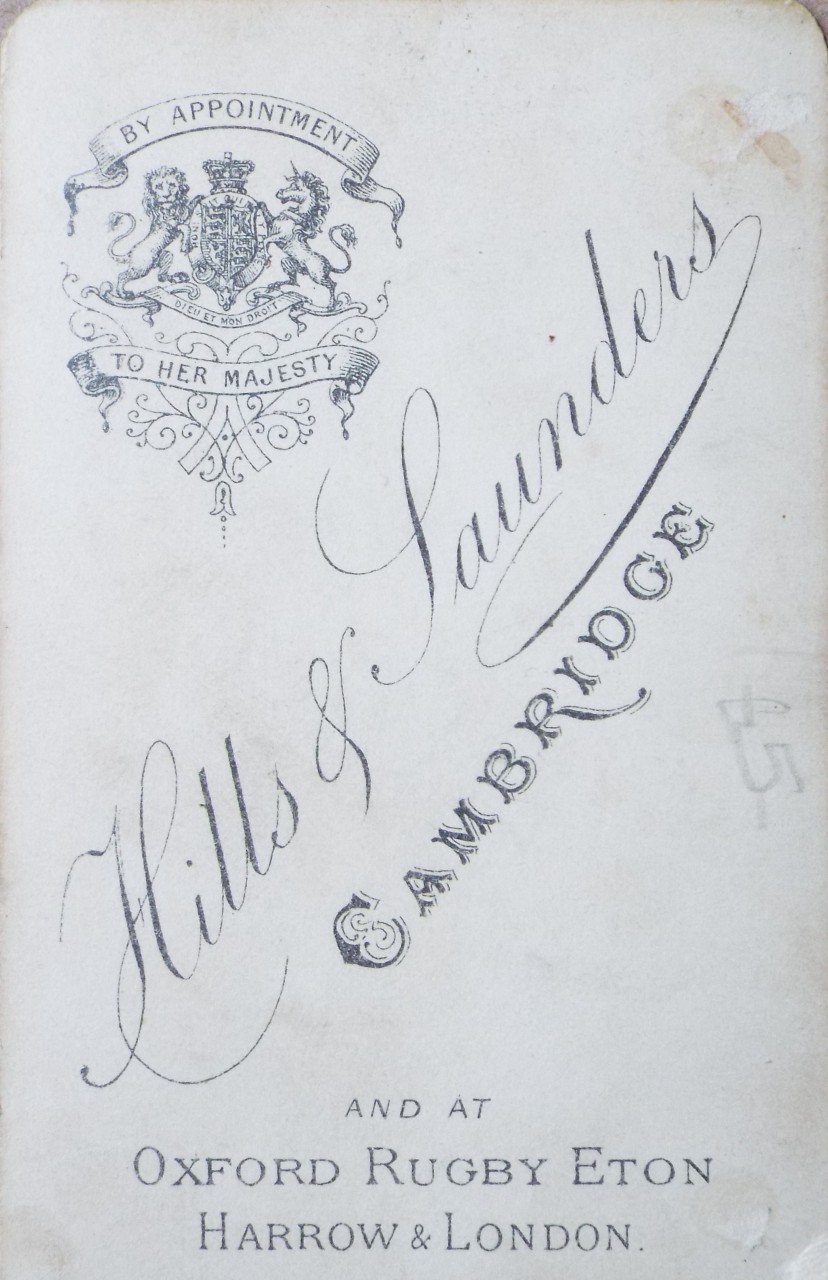 BY APPOINTMENT
DIEU ET MON DROIT
TO HER MAJESTY
Hills & Saunders
CAMBRIDGE
AND AT
OXFORD RUGBY ETON
HARROW & LONDON.